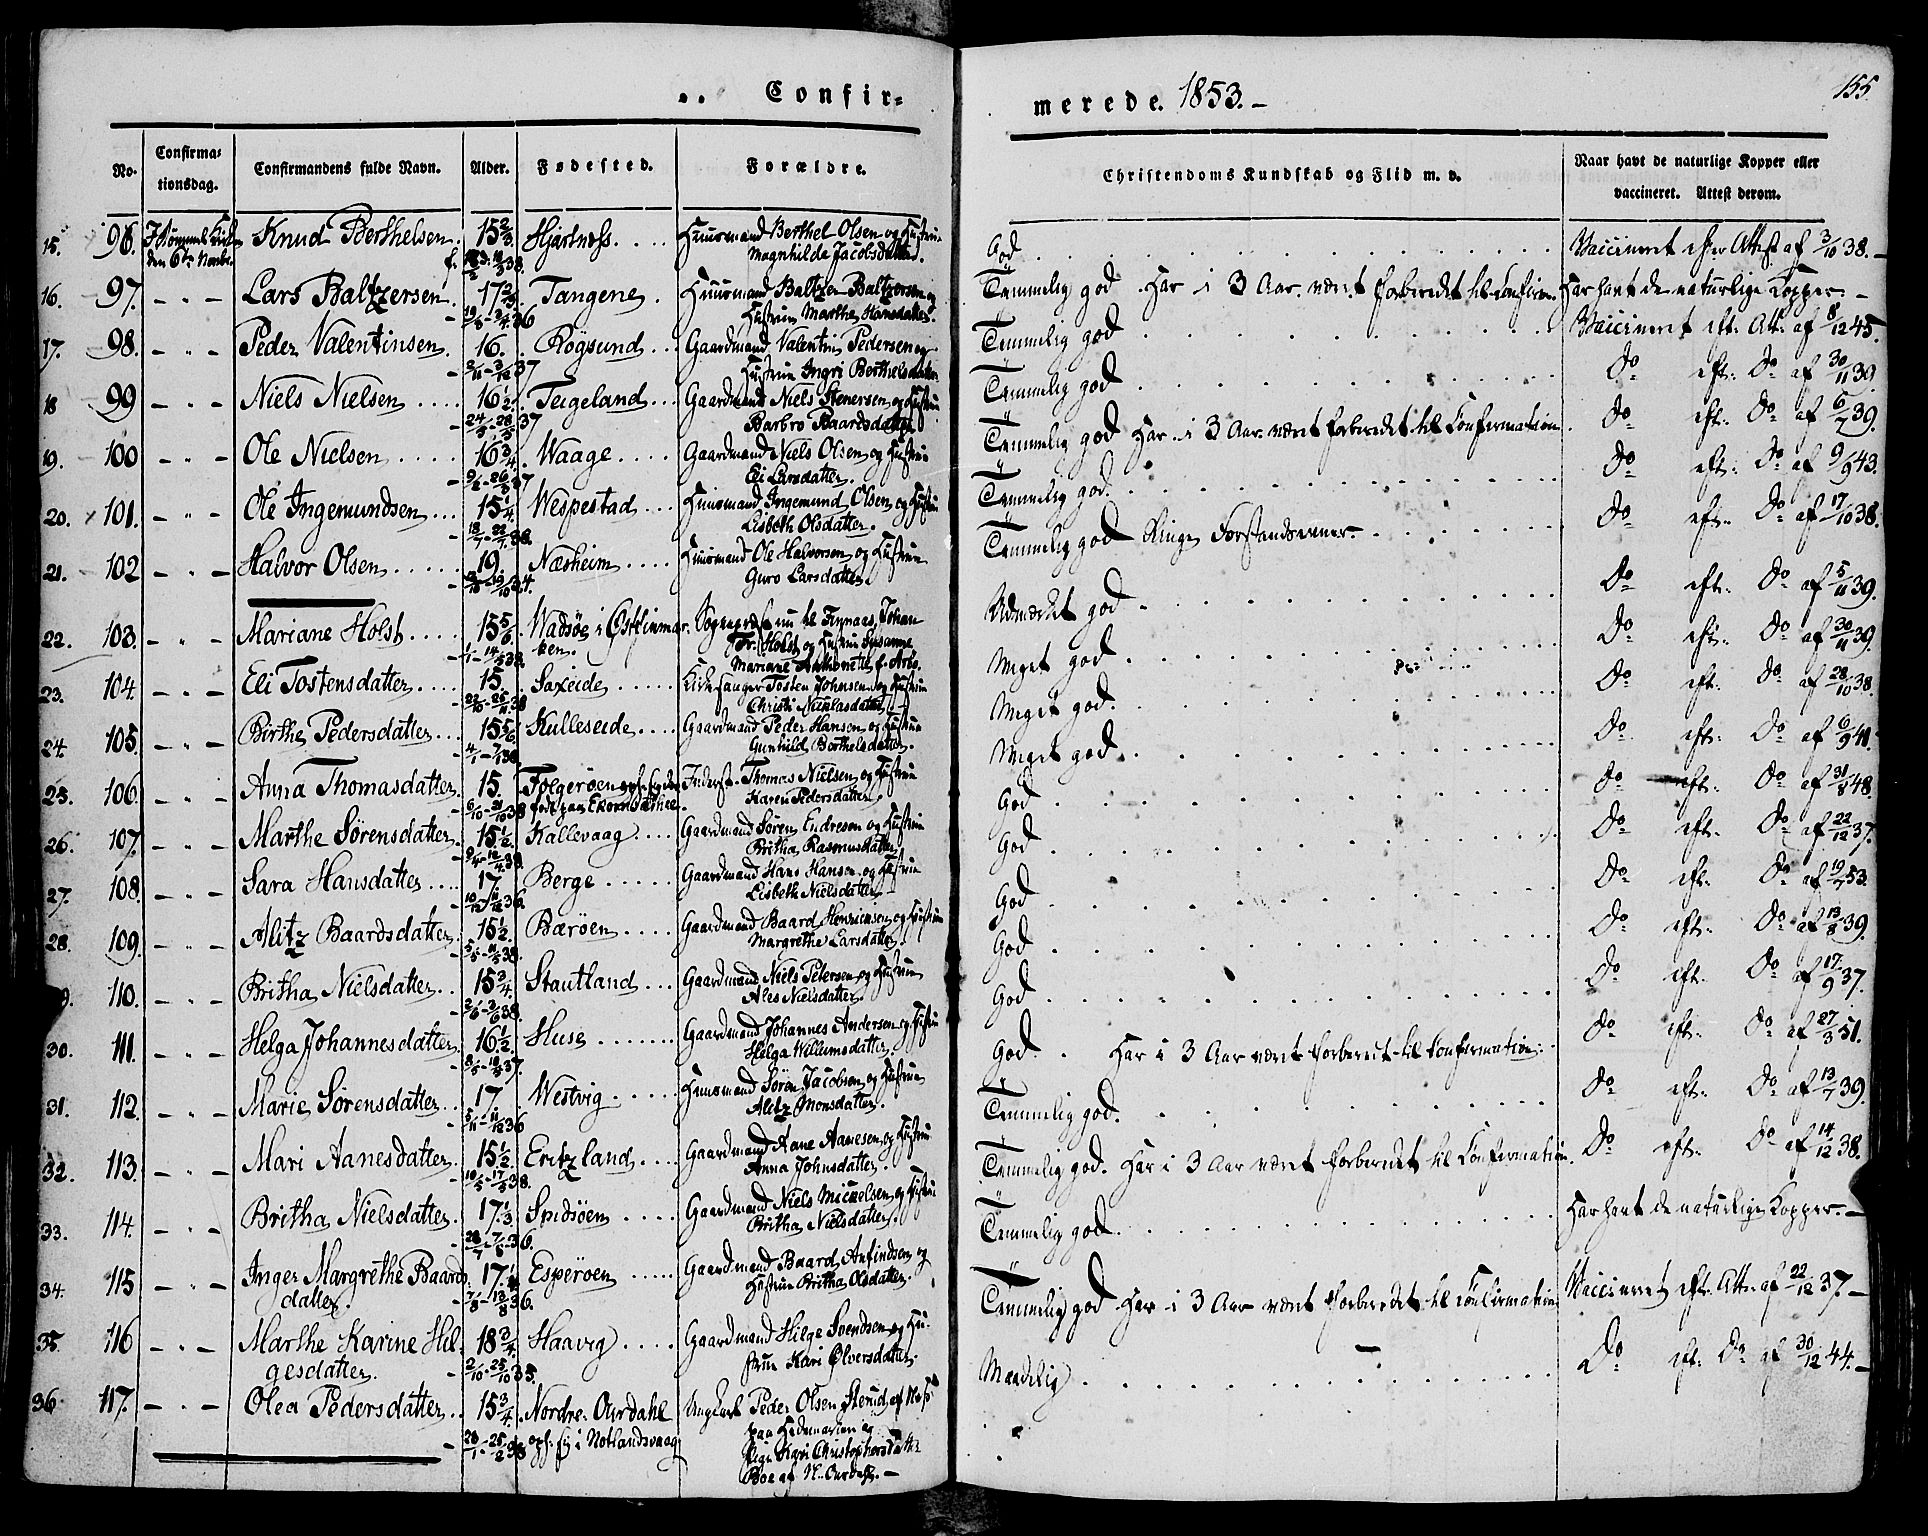 Confir-
merede. 1853.-
155
No.
Confirma-
tionsdag.
Confirmandens fulde Navn.
Alder.
Fødested.
Forældre.
Christendoms Kundskab og Flid m. v.
Naar havt de naturlige Kopper eller
vaccineret. Attest derom.
15. 96. Knud Berthelsen. 15 2/3. Hjartnæss.... Huusmand Berthel Olsen og Hustrue God. Vaccineret efter Attest af 3/10 38.-
den 6te Novbr. Magnhilde Jacobsdatter.
16. 97. - " - Lars Baltzersen. 17 Tangene. Huusmand Baltzer Baltzersen og Temmelig god. Har i 3 Aar været forberedet til Confirm. Har havt de naturlige Kopper.-
Hustrue Marthe Hansdatter.
17. 98. - " - Peder Valentinsen. 16. Røgsund... Gaardmand Valentin Pedersen og Temmelig god Vaccineret eft. Att. af 8/12 45.
Hustrue Ingri Berthelsdatter.
18 99 - " - Niels Nielsen.... 16 1/2. Teigeland... Gaardmand Niels Stenersen og Hustrue Temmelig god Do eft. Do af 30/11 39.
Barbro Baardsdatter
19. 100 - " - Ole Nielsen.... 16 3/4. Waage.... Gaardmand Niels Olsen og Hustrue Temmelig god Har i 3 Aar været forberedet til Confirmation. Do eft. Do af 6/7 39.
Eli Larsdatter.
20. 101. - " - Ole Ingemundsen... 15 1/4. Wespestad... Huusmand Ingemund Olsen og Hustrue Temmelig god. Do eft. Do af 9/9 43.
Lisbeth Olsdatter.
21. 102 - " - Halvor Olsen..... 19. Næsheim.... Huusmand Ole Halvorsen og Hustrue Temmelig god Ringe Forstandsevner. Do eft. Do af 17/10 38.
Guro Larsdatter.
22. 103. - " - Mariane Holst.... 15 5/6. Wadsøe i Østfinmar- Sognepræst nu til Fynaas, Johan Udmærket god Do eft. Do af 5/11 39.
ken. Fr. Holst og Hustrue Susanne
Mariane Anthonette f. Arbo.
23. 104. - " - Eli Tostensdatter.... 15. Saxeide..... Kirkesanger Tosten Johnsen og Hustrue Meget god Do eft. Do af 30/11 39.
Christi Nicolasdatter
24. 105. - " - Birthe Pedersdatter... 15 5/6. Kulleseide.... Gaardmand Peder Hansen og Hustrue Meget god. Do eft. Do af 28/10 38.
Gunhild Berthelsdatter.
25. 106. - " - Anna Thomasdatter. 15. Folgerøen Inderst Thomas Nielsen og Hustrue Meget god Do eft. Do af 6/9 41.
født paa Karen Pedersdatter.
26. 107. - " - Marthe Sørensdatter. 15 1/2. Kallevaag.... Gaardmand Søren Endresen og Hustrue God Do eft. Do af 31/8 48.
Britha Rasmusdatter
27. 108. - " - Sara Hansdatter.... 17. Berge...... Gaardmand Hans Hansen og Hustrue God Do eft. Do af 22/12 37.
Lisbeth Nielsdatter
28. 109. - " - Alitz Baardsdatter. 15 1/2. Bærøen.... Gaardmand Baard Henricksen og Hustrue God Do eft. Do af 19/7 53.
Margrethe Larsdatter.
110. - " - Britha Nielsdatter.. 15 3/4. Stautland... Gaardmand Niels Petersen og Hustrue God Do eft. Do af 13/8 39.
Ales Nielsdatter.
30. 111. - " - Helga Johannesdatter. 16 1/2. Huse....... Gaardmand Johannes Andersen og Hustrue God Do eft. Do af 17/9 37.
Helga Willumsdatter.
31. 112. - " - Marie Sørensdatter.. 17 Westvig..... Huusmand Søren Jacobsen og Hustrue God. Har i 3 Aar været forberedt til Confirmation. Do eft. Do af 27/3 51.
Alitz Monsdatter.
32. 113. - " - Mari Aanesdatter. 15 1/2. Eritzland.... Gaardmand Aane Aanesen og Hustrue Temmelig god. Do eft. Do af 13/7 39.
Anna Johnsdatter.
33. 114. - " - Britha Nielsdatter. 17 1/3. Spidsøen.... Gaardmand Niels Mickelsen og Hustrue Temmelig god. Har i 3 Aar været forberedet til Confirmation. Do eft. Do af 14/12 38.
Britha Nielsdatter.
34. 115 - " - Inger Margrethe Baards- 17 Esperøen..... Gaardmand Baard Anfindsen og Temmelig god. Har havt de naturlige Kopper.-
datter. Hustrue Britha Olsdatter.
35. 116 - " - Marthe Karine Hel- 18 3/4. Haavig.... Gaardmand Helge Svendsen og Hu- Temmelig god. Har i 3 Aar været forberedet til Confirmation Vaccineret eft. Att. af 22/12 37.-
gesdatter. strue Kari Ølversdatter.
36. 117. - " - Olea Pedersdatter.. 15 3/4. Nordre Aurdahl Ungkarl Peder Olsen Maadelig Do eft. Do af 30/12 44.-
i Notlandsvaag paa Hedemarken og
Pige Kari Christophersdatter
Boe af N. Aurdahl.-